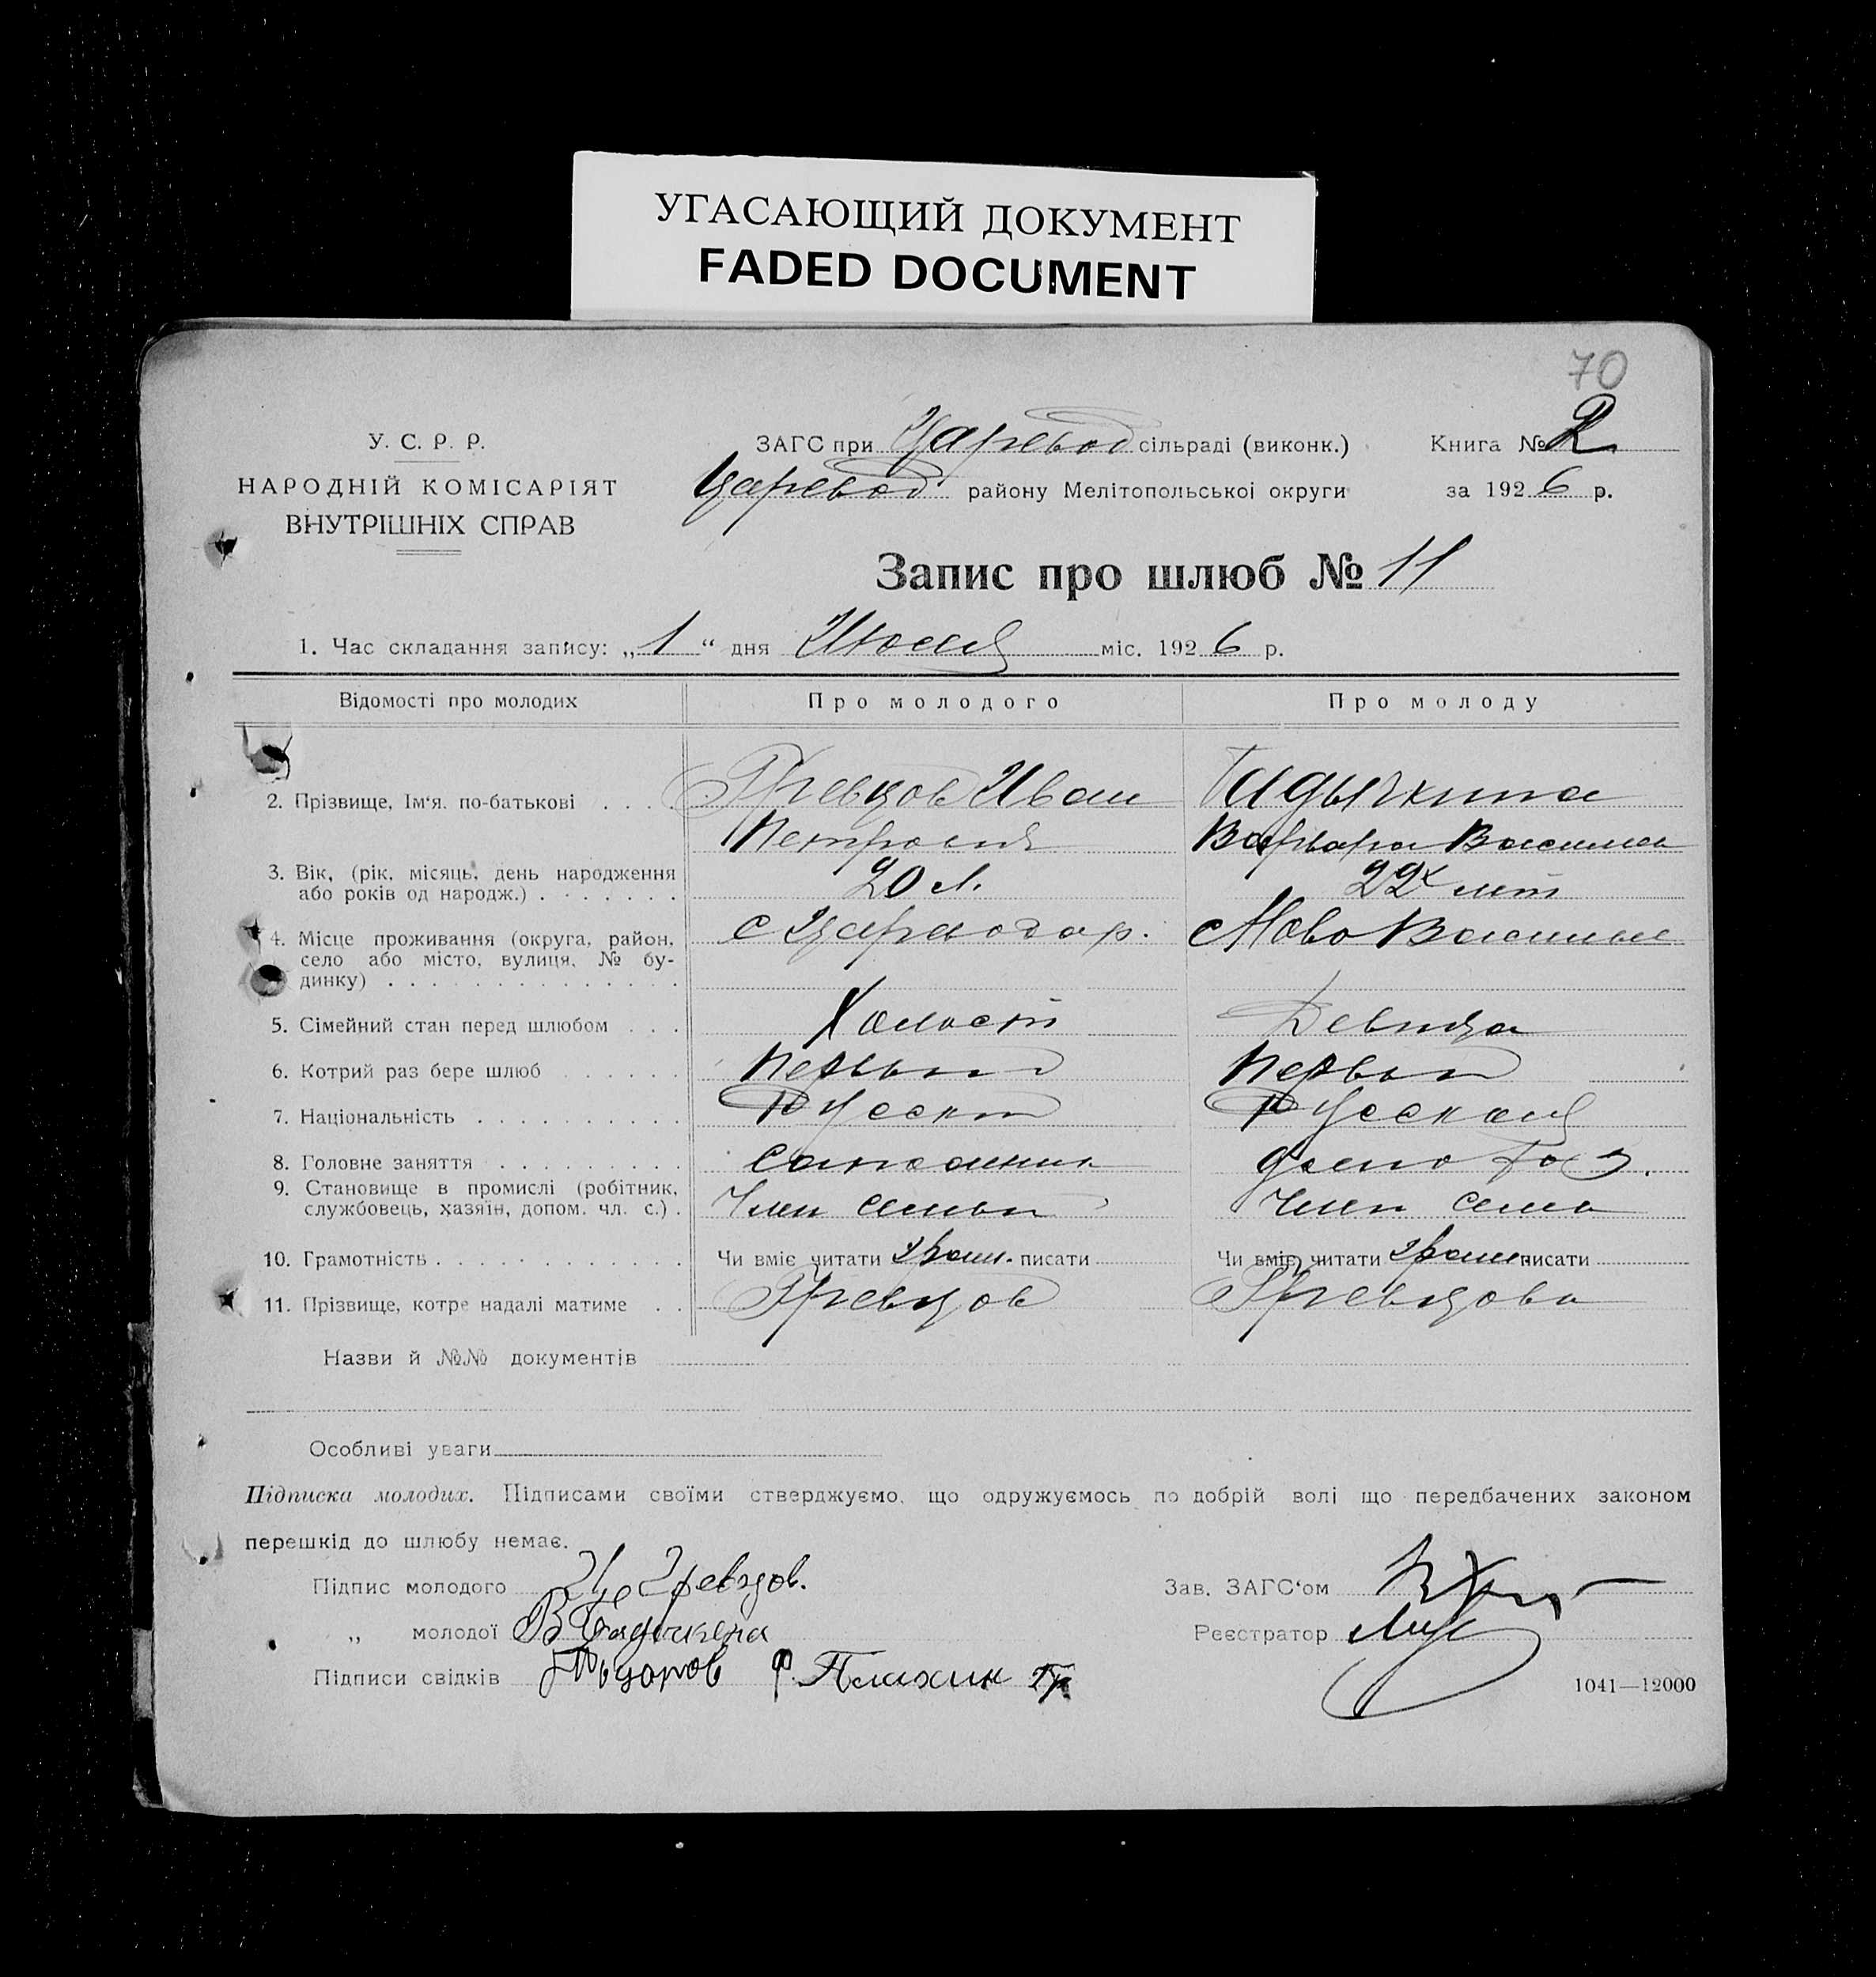 УГАСАЮЩИЙ ДОКУМЕНТ
FADED DOCUMENT
70
У. С. Р. Р.
НАРОДНІЙ КОМІСАРІЯТ
ВНУТРІШНІХ СПРАВ
ЗАГС при Царевод сільраді (виконк.)
Царевод району Мелітопольської округи
Книга № 2
за 1926 р.
Запис про шлюб № 11
1. Час складання запису: „1“ дня Июля міс. 1926 р.
Відомості про молодих Про молодого Про молоду
2. Прізвище, Ім'я. по-батькові Гревцов Иван Гадычкина
Петрович Варвара Василев
3. Вік, (рік, місяць, день народження
або років од народж.) 20 л. 22х лет
4. Місце проживання (округа, район, с Цареводар. с Ново Василье
село або місто, вулиця, № бу-
динку)
5. Сімейний стан перед шлюбом Холост Девица
6. Котрий раз бере шлюб Первый Первый
7. Національність Русский Русская
8. Головне заняття домо хоз.
9. Становище в промислі (робітник,
службовець, хазяїн, допом. чл. с.) Член семьи Член семьи
10. Грамотність Чи вміє читати грам. писати Чи вміє читати грам. писати
11. Прізвище, котре надалі матиме Гревцов Гревцова
Назви й №№ документів
Особливі уваги
Підписка молодих. Підписами своїми стверджуємо, що одружуємось по добрій волі що передбачених законом
перешкід до шлюбу немає.
Підпис молодого И Гревцов.
„ молодої В Гадычкена
Підписи свідків Ф. Плахин
Зав. ЗАГС'ом
Реєстратор
1041—12000